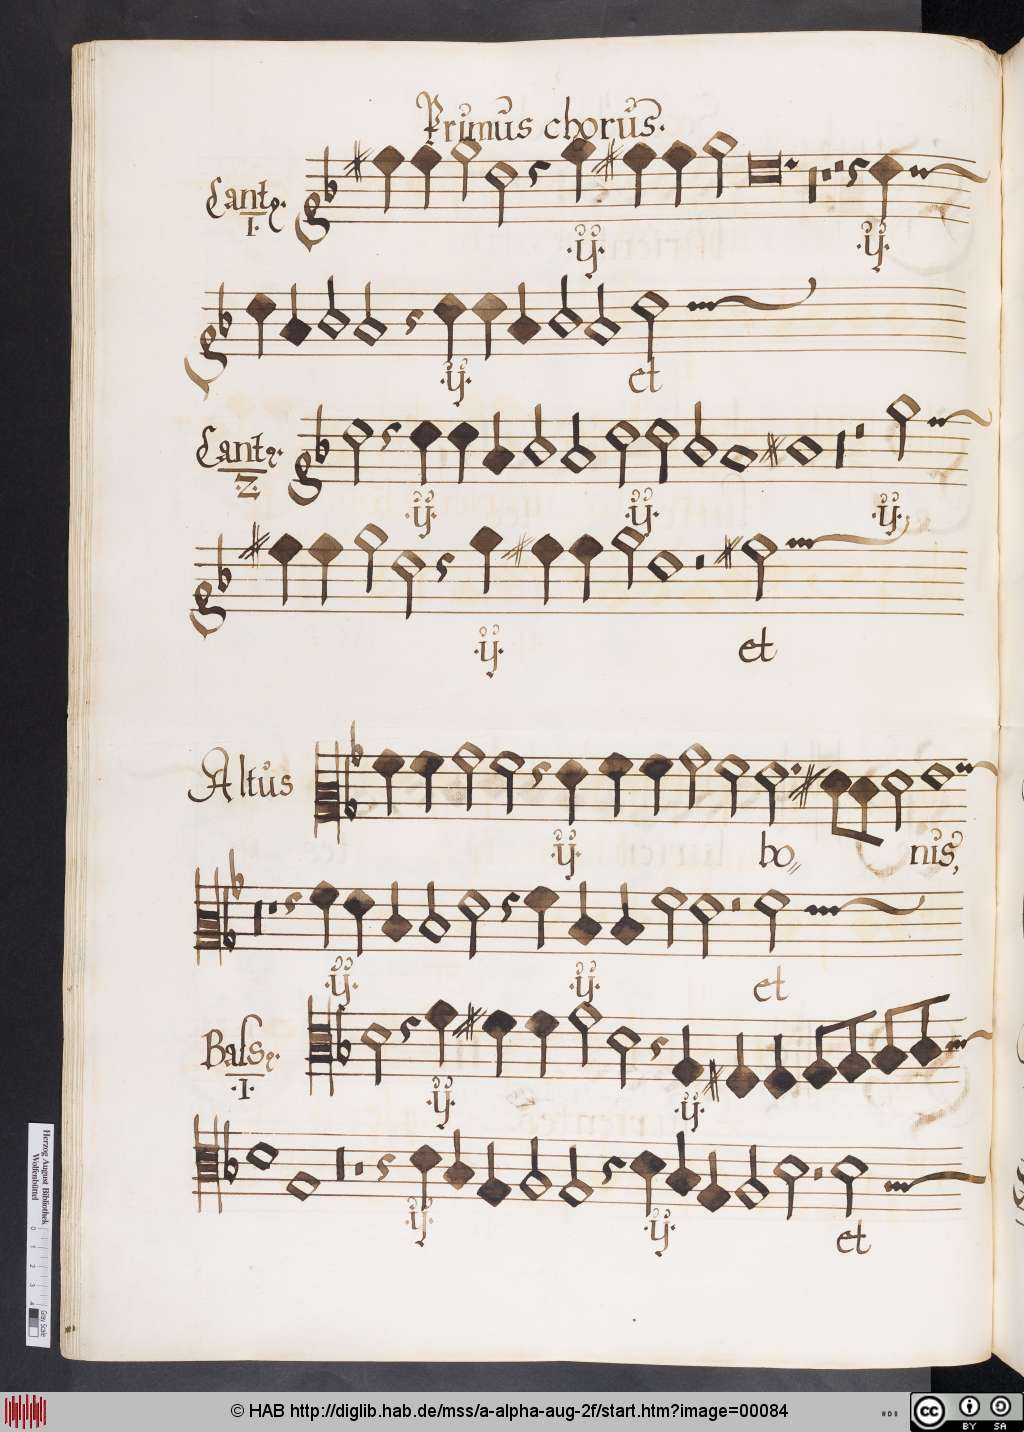 Primus chorus.
Cantꝰ.
1.
.ij.
.ij.
.ij.
et
Cantꝰ.
.2.
.ij.
.ij.
.ij.
.ij.
et
Altus
.ij.
bo=
nis,
.ij.
.ij.
et
Bassꝰ.
.1.
.ij.
.ij.
.ij.
.ij.
et
Herzog August Bibliothek
Wolfenbüttel
0 1 2 3 4
Gray Scale
© HAB http://diglib.hab.de/mss/a-alpha-aug-2f/start.htm?image=00084
cc
BY SA